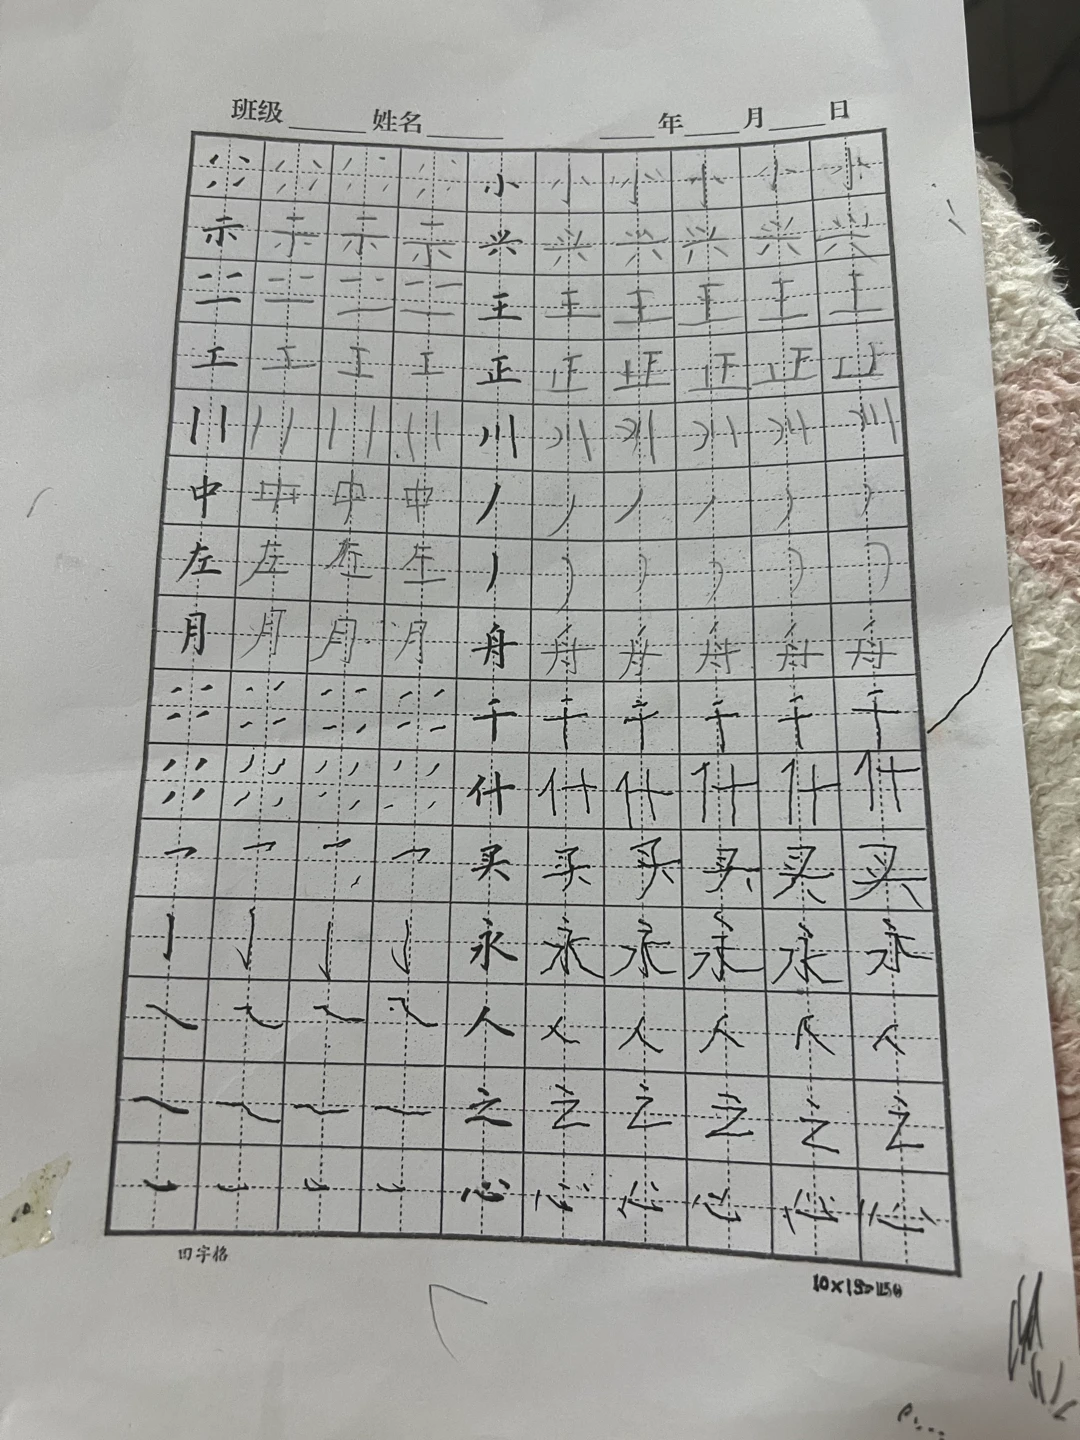 班级______姓名______ ____年____月____日
小 小 小 小 小 小
示 示 示 示 兴 兴 兴 兴 兴 兴
二 二 二 二 王 王 王 王 王 王
工 工 工 工 正 正 正 正 正 正
川 川 川 川 川 川
中 中 中 中 丿 丿 丿 丿 丿 丿
左 左 左 左 丿 丿 丿 丿 丿 丿
月 月 月 月 舟 舟 舟 舟 舟 舟
千 千 千 千 千 千
什 什 什 什 什 什
买 买 买 买 买 买
永 永 永 永 永 永
人 人 人 人 人 人
之 之 之 之 之 之
心 心 心 心 心 心
田字格